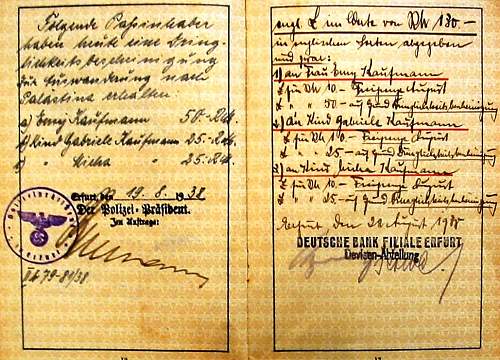 Folgende Passinhaber
haben heute eine Dring-
lichkeitsbescheinigung
für Auswanderung nach
Palästina erhalten:
a) Emy Kaufmann 50.- RM.
b) Kind Gabriele Kaufmann 25.- RM.
c) " Micha " 25.- RM.
Erfurt, 19. 8. 1938
Der Polizei-Präsident.
Im Auftrage:
II b 79-81/38
engl. £ im Werte von RM 130.-
in englischen Sorten abgegeben
und zwar:
1) an Frau Emy Kaufmann
£ für RM 10.- Freigrenze August
£ " " 50.- auf Grund Dringlichkeitsbescheinigung
2) an Kind Gabriele Kaufmann
£ für RM 10.- Freigrenze August
£ " " 25.- auf Grund Dringlichkeitsbescheinigung
3) an Kind Micha Kaufmann
£ für RM 10.- Freigrenze August
£ " " 25.- auf Grund Dringlichkeitsbescheinigung
Erfurt, den August 1938
DEUTSCHE BANK FILIALE ERFURT
Devisen-Abteilung